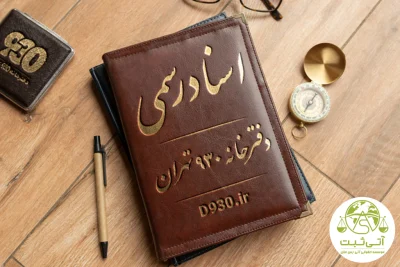 اسناد رسمی
دفترخانه ۹۳۰ تهران
D930.ir
930
آتی ثبت